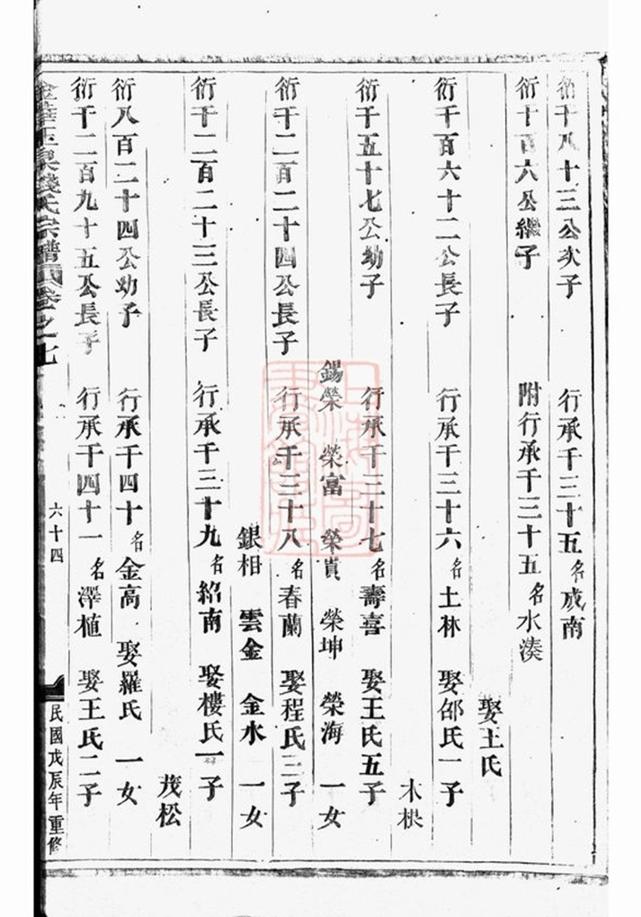 衍千八十三公次子 行承千三十五名成南
衍千百六公繼子 附行承千三十五名水湊
娶王氏
衍千百六十二公長子 行承千三十六名土林 娶邵氏一子
木根
衍千五十七公幼子 行承千三十七名壽喜 娶王氏五子
錫榮 榮富 榮貴 榮坤 榮海 一女
衍千二百二十四公長子 行承千三十八名春蘭 娶程氏三子
銀相 雲金 金水 一女
衍千二百二十三公長子 行承千三十九名紹南 娶樓氏一子
茂松
衍八百二十四公幼子 行承千四十名金高 娶羅氏 一女
衍千二百九十五公長子 行承千四十一名澤植 娶王氏二子
金華玉泉錢氏宗譜 卷之七 六十四 民國戊辰年重修